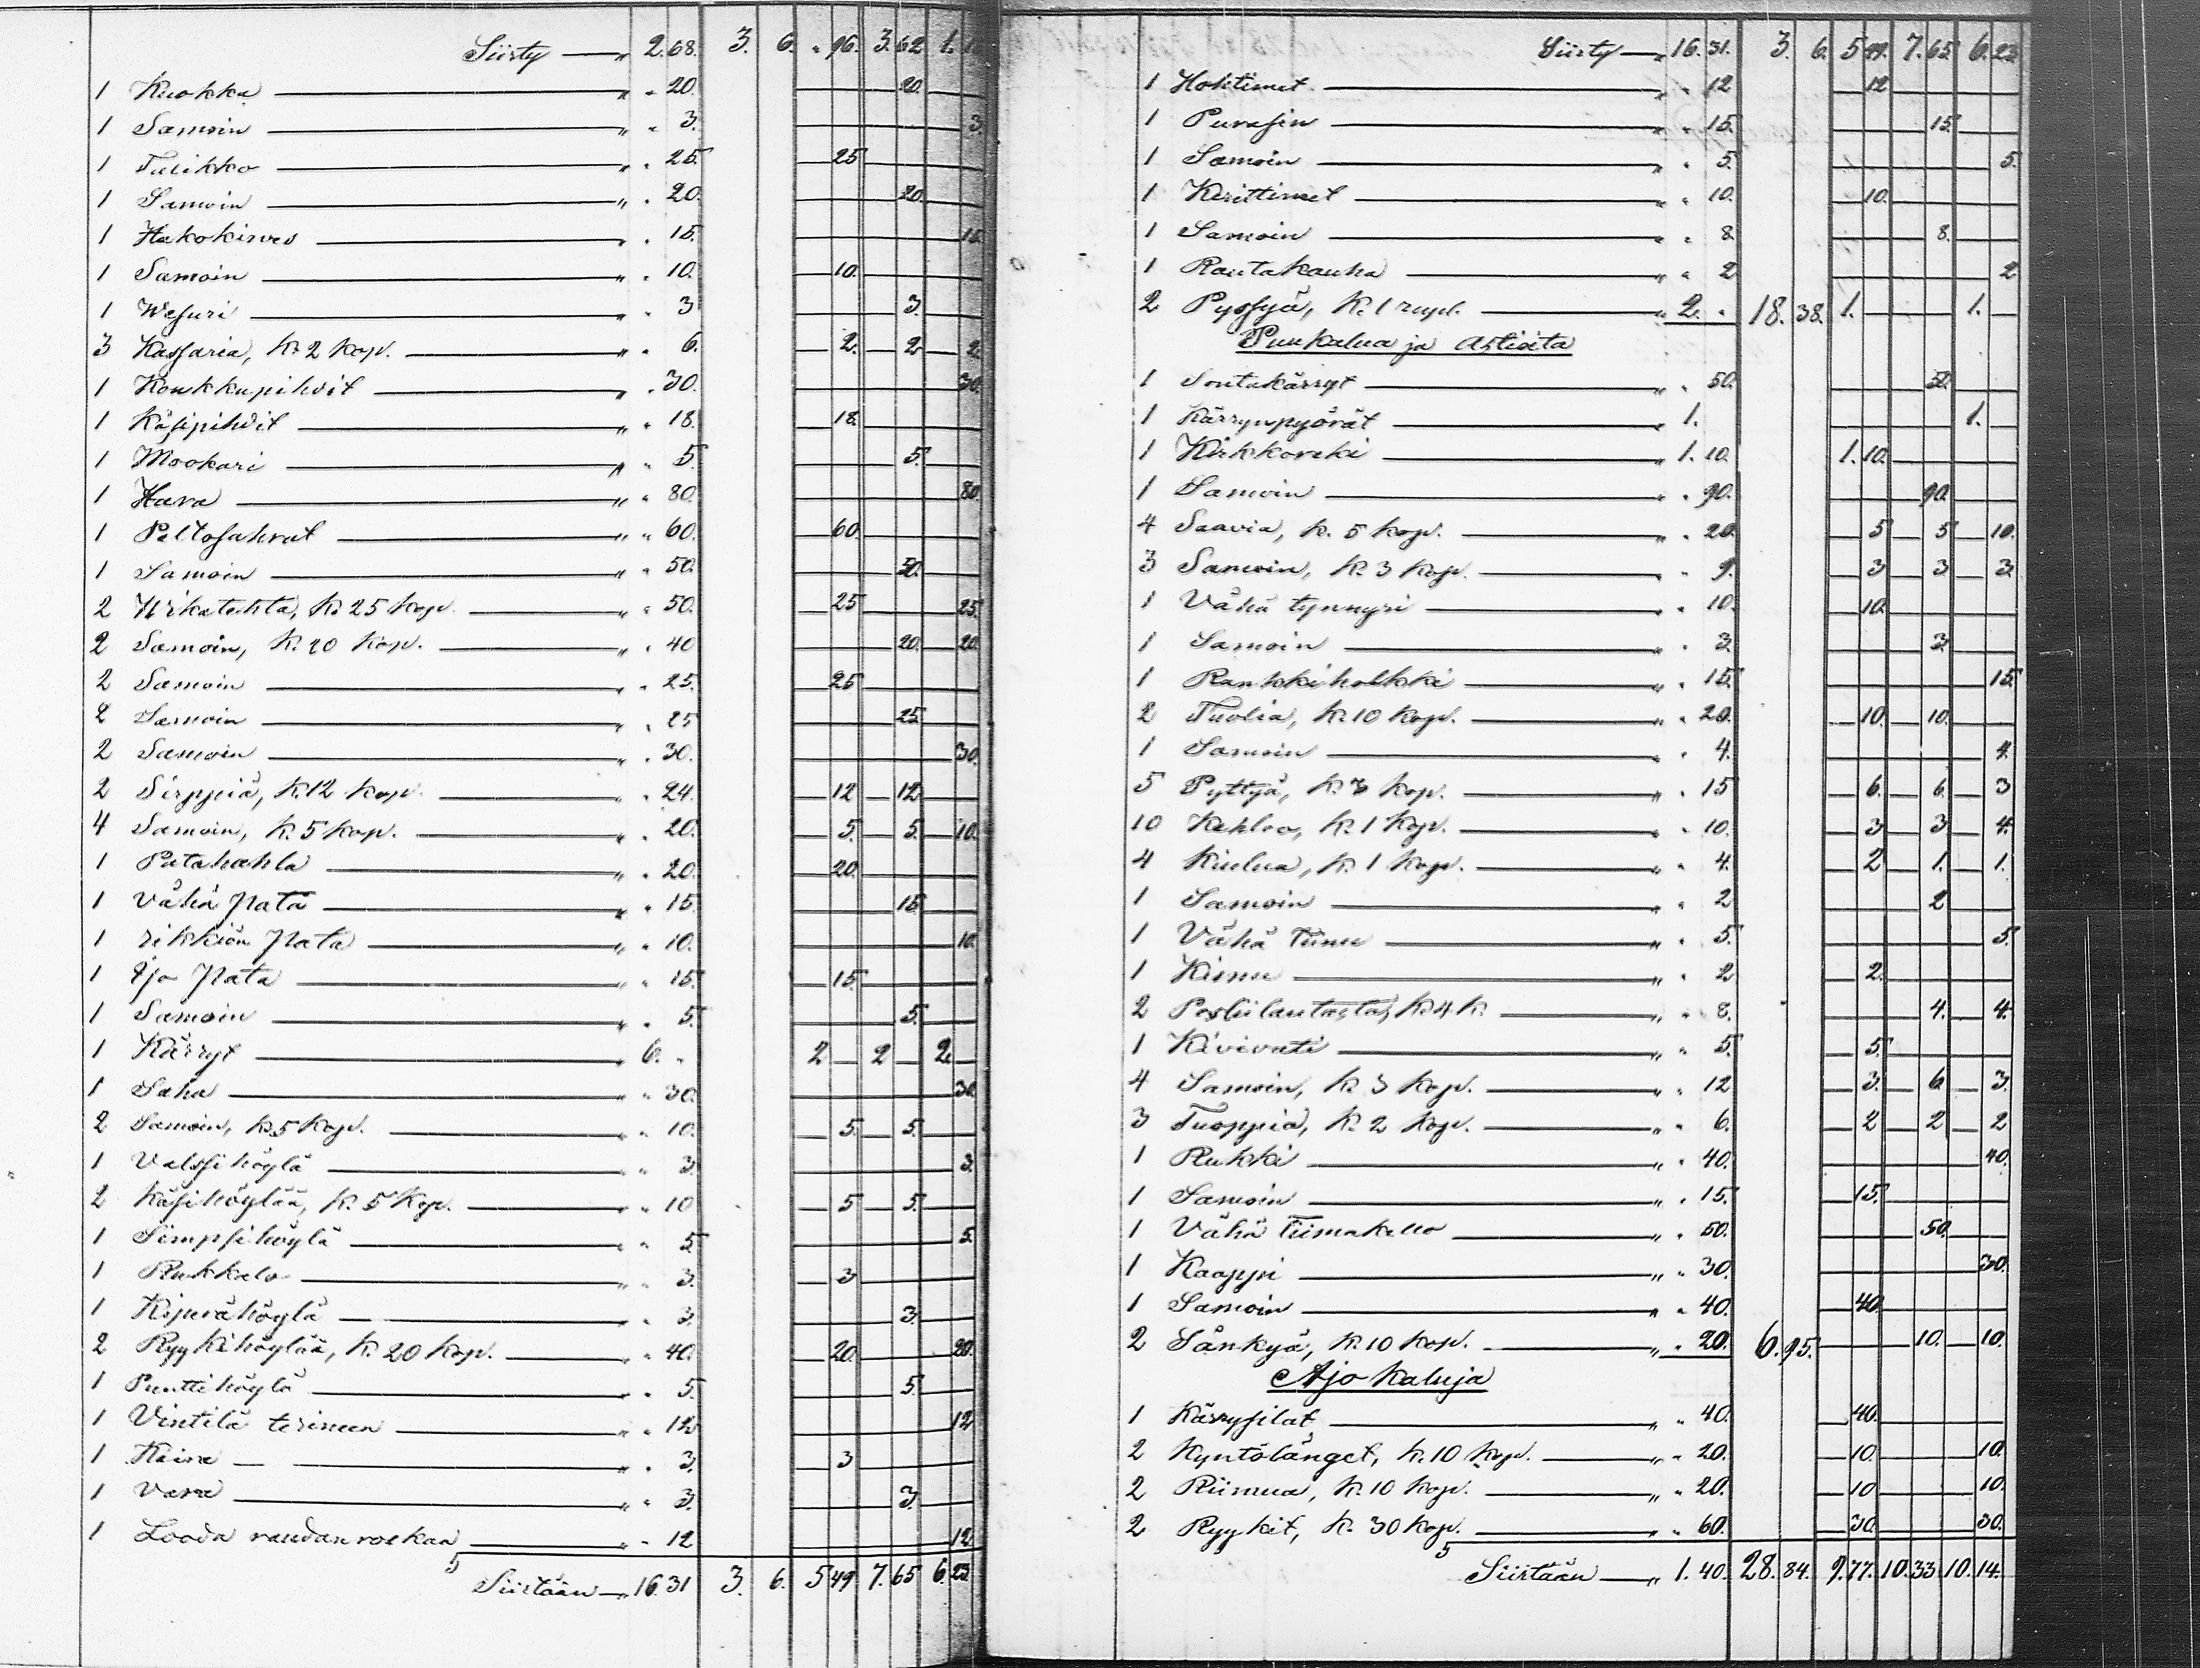 Siirty — „ 2.68. 3. 6. „ 96. 3.62. 1.
1 Kuokka — „ „ 20. 20.
1 Samoin — „ „ 3. 3.
1 Talikko — „ „ 25. 25
1 Samoin — „ „ 20. 20.
1 Hakokirves — „ „ 15. 15
1 Samoin — „ „ 10. 10.
1 Wesuri — „ „ 3 3.
3 Kassaria, K. 2 Kop. — „ „ 6. 2. 2 2.
1 Koukkupihdit — „ „ 30. 30.
1 Käsipihdit — „ „ 18. 18.
1 Mookari — „ „ 5. 5.
1 Hara — „ „ 80. 80.
1 Peltosahrat — „ „ 60. 60.
1 Samoin — „ „ 50. 50.
2 Wikatetta, K. 25 Kop. — „ „ 50. 25 25.
2 Samoin, K. 20 Kop. — „ „ 40 20. 20.
2 Samoin — „ „ 25. 25
2 Samoin — „ „ 25 25.
2 Samoin — „ „ 30. 30.
2 Sirppiä, K. 12 Kop. — „ „ 24. 12 12
4 Samoin, K. 5 Kop. — „ „ 20. 5. 5. 10.
1 Patahahla — „ „ 20. 20.
1 Vähä pata — „ „ 15. 15.
1 rikkiön pata — „ „ 10. 10.
1 Ijo pata — „ „ 15. 15.
1 Samoin — „ „ 5. 5.
1 Kärryt — „ 6. „ 2 2 2.
1 Saha — „ „ 30. 30.
2 Samoin, K. 5 Kop. — „ „ 10. 5. 5.
1 Valssihöylä — „ „ 3. 3.
2 Käsihöylää, K. 5 Kop. — „ „ 10 5 5.
1 Simpsihöylä — „ „ 5 5.
1 Rukkalo — „ „ 3. 3
1 Kipurähöylä — „ „ 3. 3.
2 Ryykihöylää, K. 20 Kop. — „ „ 40. 20. 20.
1 Punttihöylä — „ „ 5. 5.
1 Vintilä terineen — „ „ 12 12
1 Kaira — „ „ 3. 3
1 Vara — „ „ 3. 3.
1 Looda raudan roekaa — „ „ 12 12.
Siirtään — „ 16.31 3. 6. 5 49 7. 65 6. 23.
Siirty — „ 16.31. 3. 6. 5 49. 7. 65. 6. 23
1 Hohtimet — „ „ 12 12
1 Purasin — „ „ 15. 15.
1 Samoin — „ „ 5. 5.
1 Kerittimet — „ „ 10. 10.
1 Samoin — „ „ 8 8.
1 Rautakauha — „ „ 2 2
2 Pyssyä, K. 1 rupl. — „ 2. „ 18. 38. 1. 1.
Puukalua ja Astioita
1 Sontakärryt — „ „ 50. 50.
1 Kärrynpyörät — „ 1. 1.
1 Kirkkoreki — „ 1. 10. 1. 10.
1 Samoin — „ „ 90. 90.
4 Saavia, K. 5 Kop. — „ „ 20. 5 5 10.
3 Samoin, K. 3 Kop. — „ „ 9. 3 3 3.
1 Vähä tynnyri — „ „ 10. 10.
1 Samoin — „ „ 3. 3
1 Rankkiholkki — „ „ 15. 15.
2 Tuolia, K. 10 Kop. — „ „ 20. 10. 10.
1 Samoin — „ „ 4. 4.
5 Pyttyä, K. 3 Kop. — „ „ 15 6. 6. 3
10 Kehloo, K. 1 Kop. — „ „ 10. 3 3 4.
4 Kiulua, K. 1 Kop. — „ „ 4. 2 1. 1.
1 Samoin — „ „ 2 2
1 Vähä tiinu — „ „ 5. 5.
1 Kirnu — „ „ 2 2.
2 Posliilautasta, K. 4 K. — „ „ 8. 4. 4.
1 Kivivati — „ „ 5. 5.
4 Samoin, K. 3 Kop. — „ „ 12 3. 6 3.
3 Tuoppia, K. 2 Kop. — „ „ 6. 2 2 2
1 Rukki — „ „ 40. 40.
1 Samoin — „ „ 15. 15.
1 Vähä tiimakello — „ „ 50. 50.
1 Kaappi — „ „ 30. 30.
1 Samoin — „ „ 40. 40.
2 Sänkyä, K. 10 Kop. — „ „ 20. 6. 95. 10. 10.
Ajo Kaluja
1 Kärrysilat — „ „ 40. 40.
2 Kyntölänget, K. 10 Kop. — „ „ 20. 10. 10.
2 Riimua, K. 10 Kop. — „ „ 20. 10 10.
2 Ryykit, K. 30 Kop. — „ „ 60. 30. 30.
Siirtään — „ 1. 40. 28. 84. 9. 77. 10. 33 10. 14.